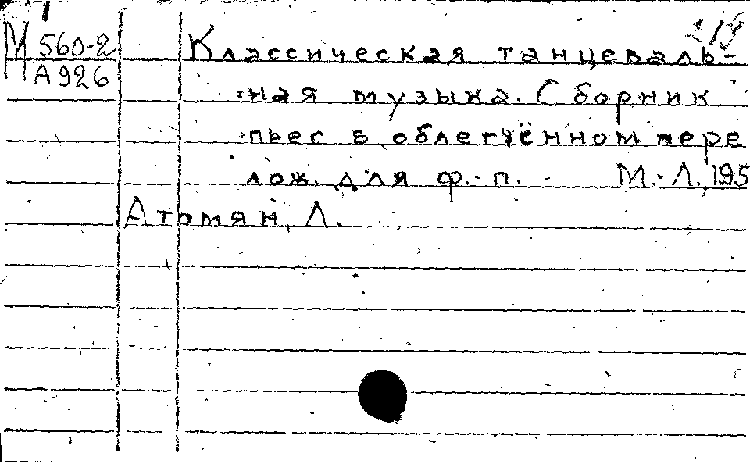 М 560-2 Классическая танцеваль-
А926 ная музыка. Сборник
пьес в облегчённом пере
лож. для ф.-п. - М.-Л, 195
Атомян, Л.